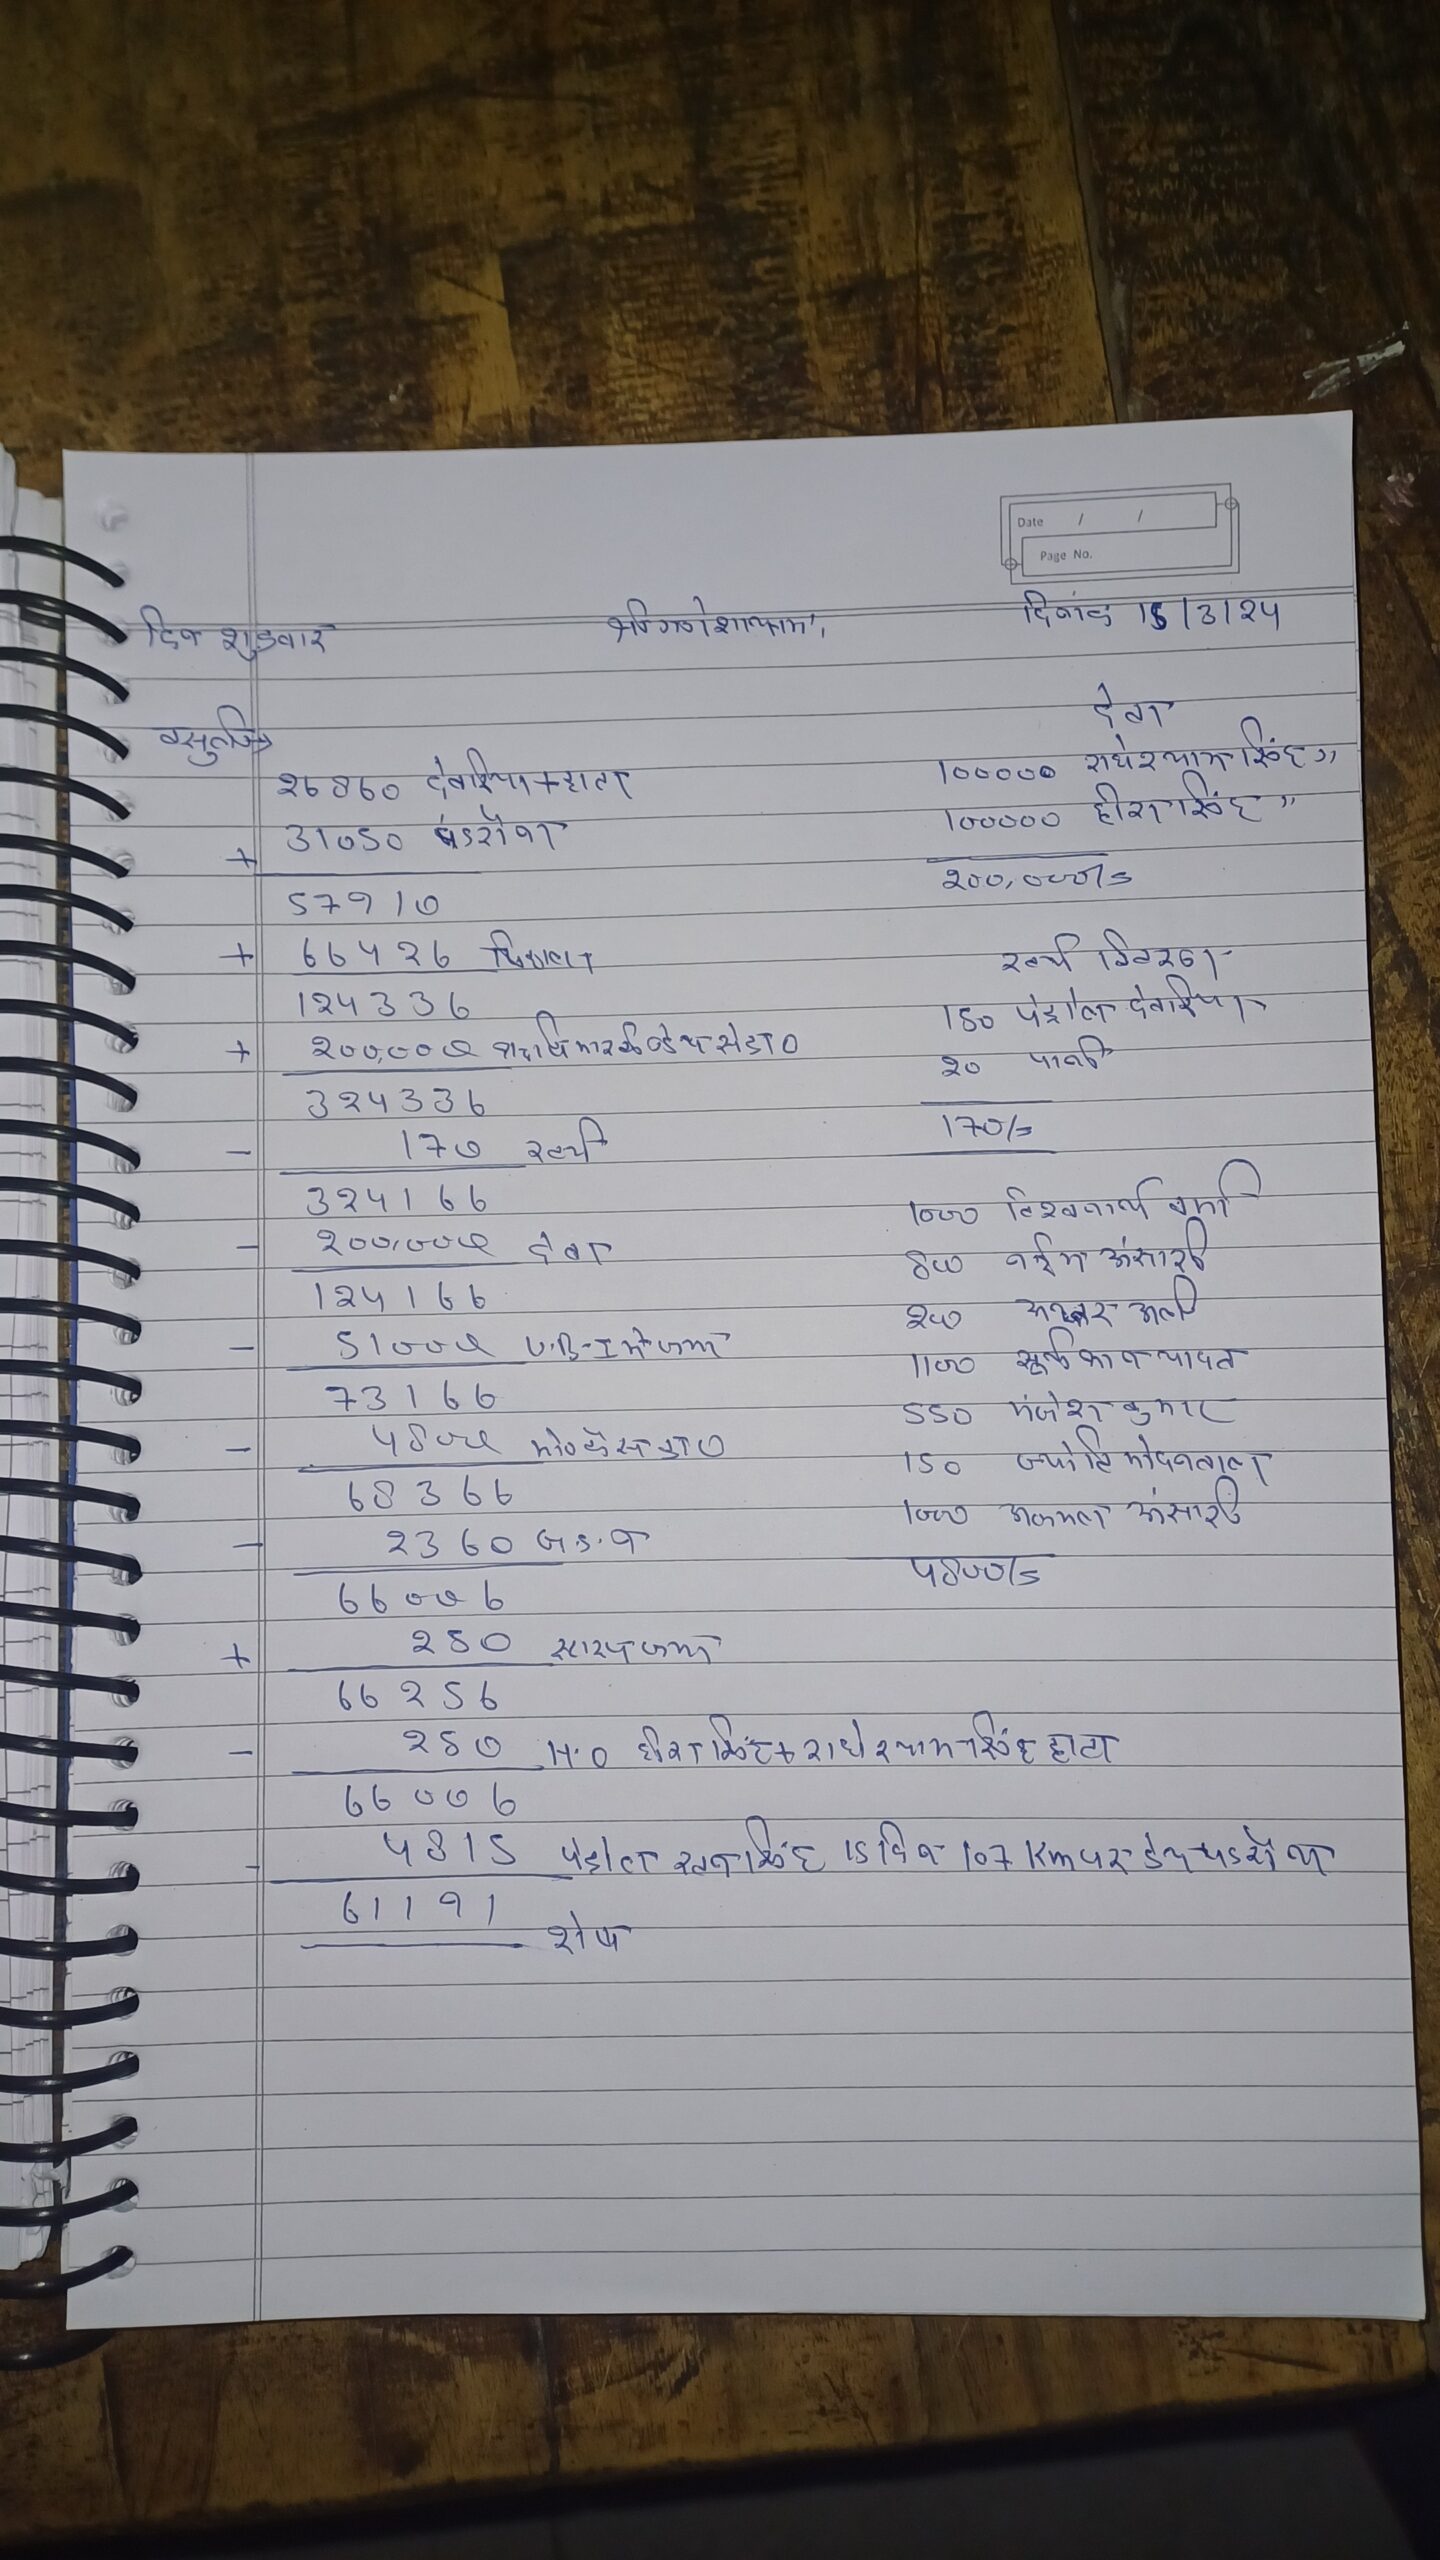 Date / /
Page No.
दिन शुक्रवार
दिनांक 15/3/24
वसुली→
26860 देवरिया + हाटा
+ 31050 पडरौना
57910
+ 66426
124336
+ 200,000
324336
- 170 खर्चा
324166
- 200,000 देना
124166
- 51000 U.B.I में जमा
73166
- 4800
68366
- 2360
66006
+ 250 जमा
66256
- 250 H.O हीरा सिंह + राधेश्याम सिंह हाटा
66006
- 4815 पेट्रोल सिंह 15 दिन 107 Km पर डे पडरौना
61191
शेष
देना
100000 राधेश्याम सिंह "
100000 हीरा सिंह "
200,000/=
खर्चा विवरण
150 पेट्रोल देवरिया
20 पानी
170/=
1000 विश्वनाथ वर्मा
800 नईम अंसारी
200 अली
1100 यादव
550 कुमार
150 ज्योति
1000 अंसारी
4800/=